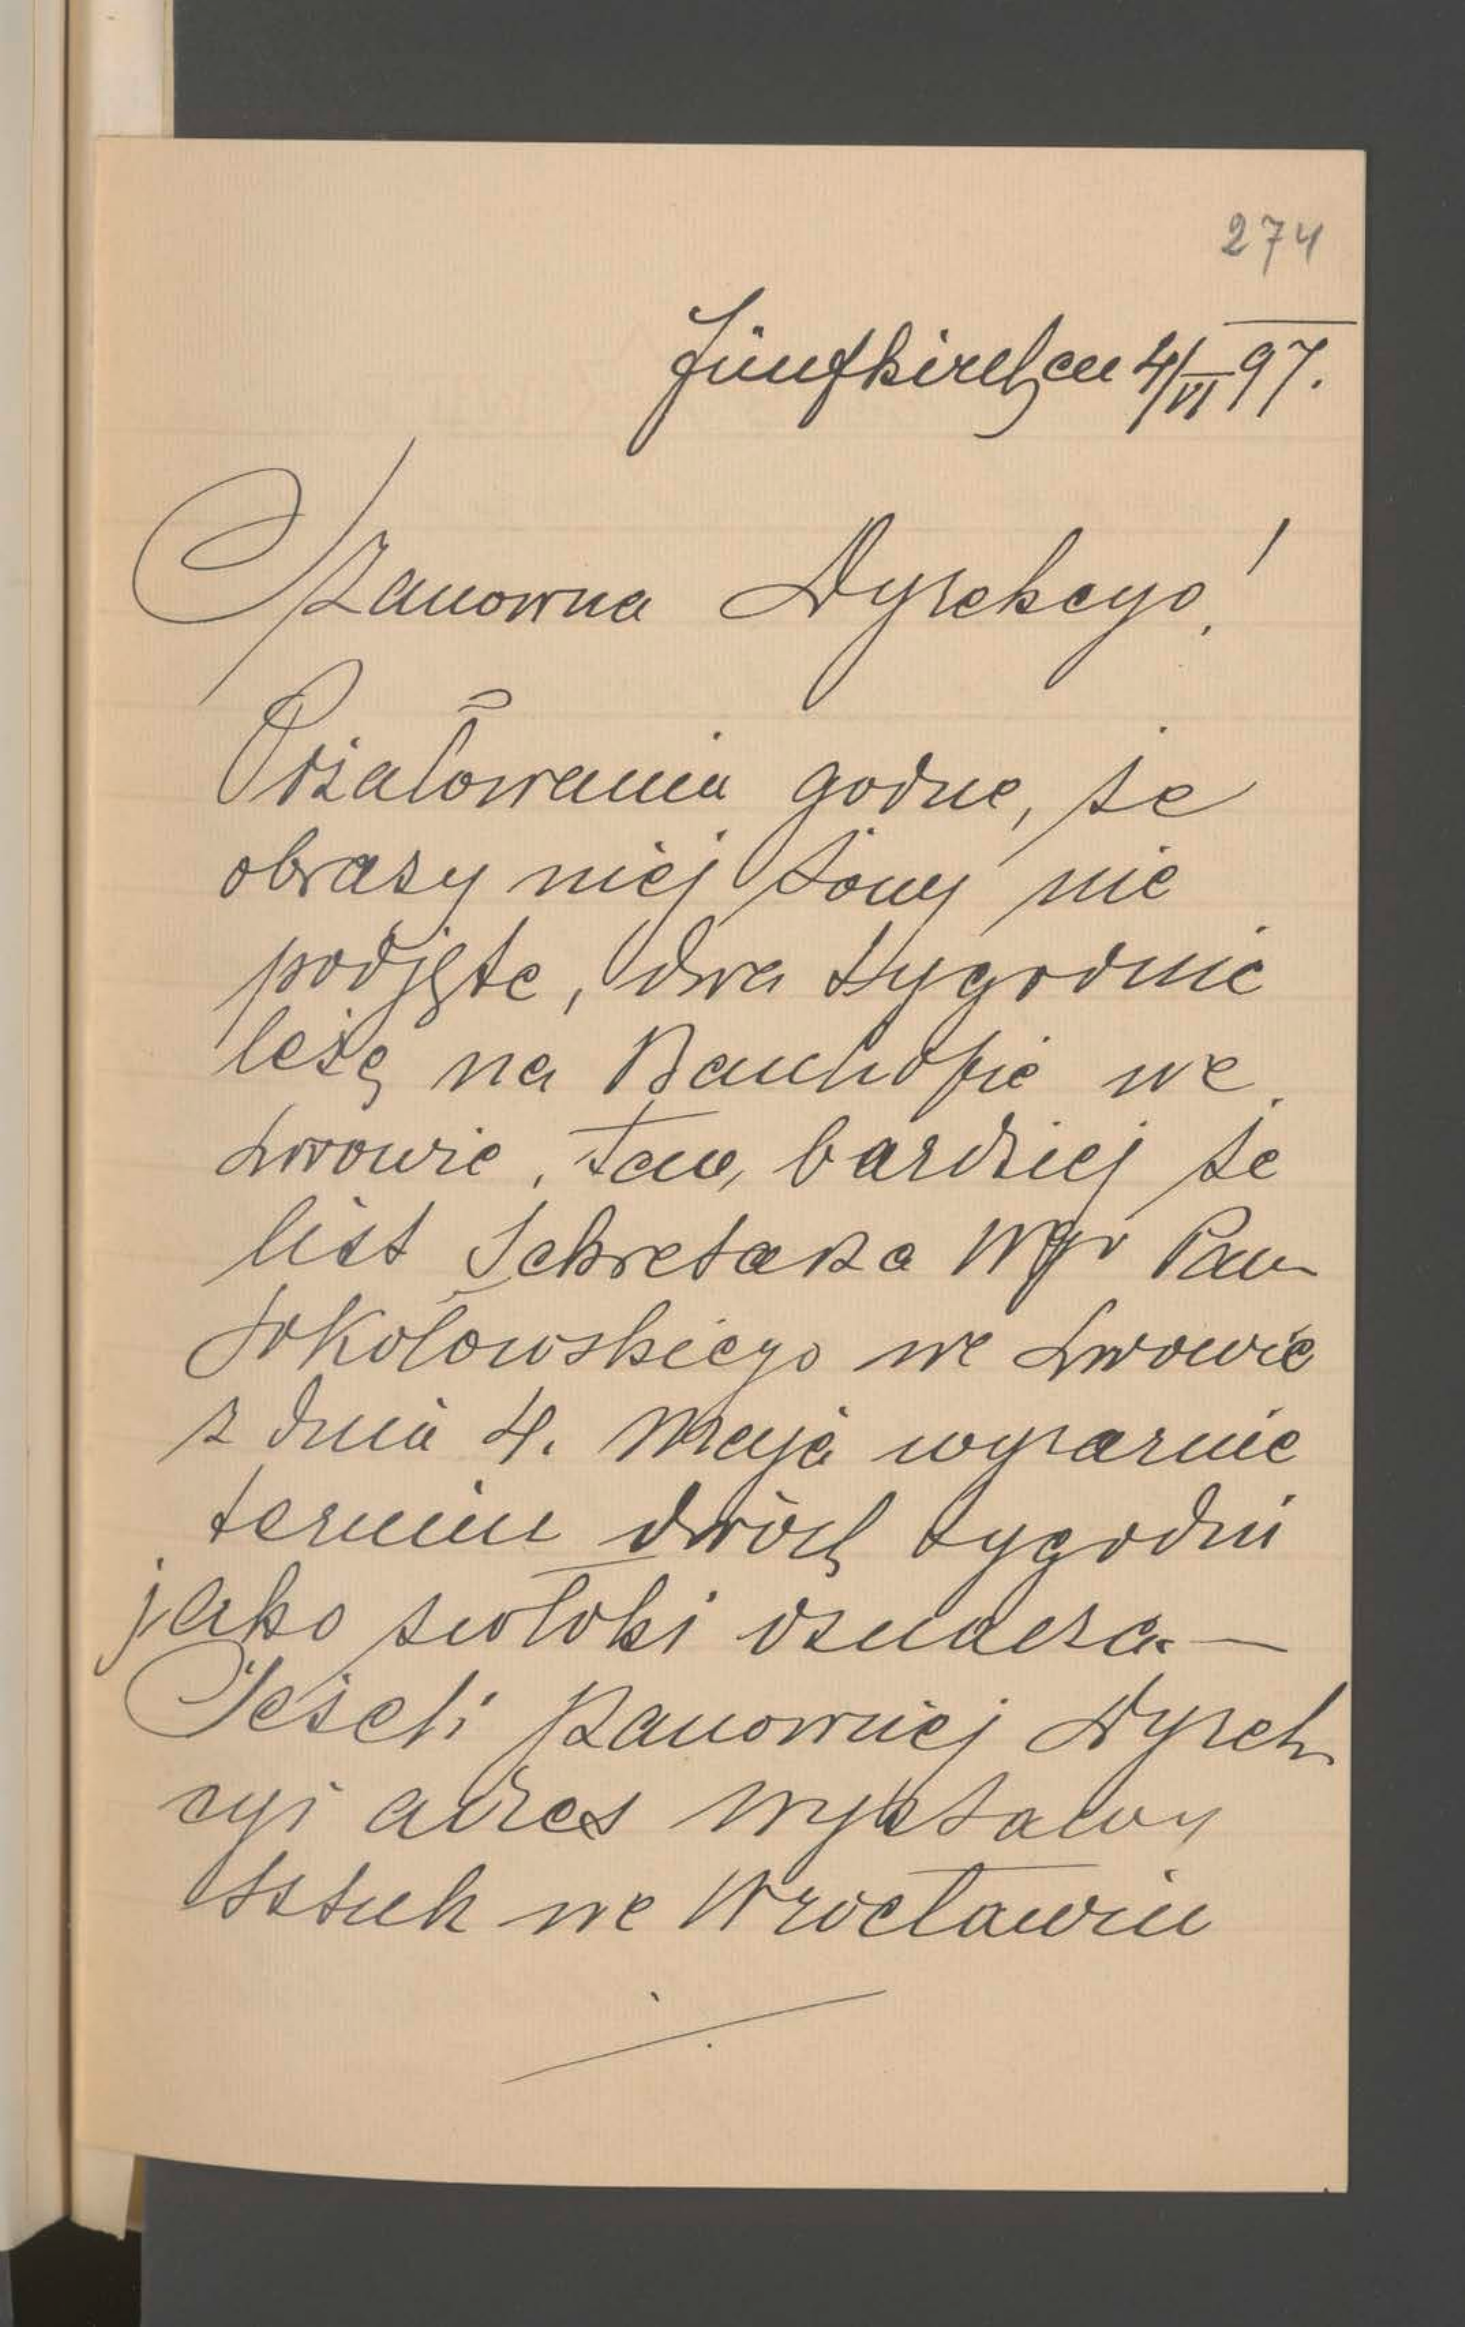 274
Fünfkirchen 4/VI 97.
Szanowna Dyrekcyo!
Pożałowania godne, że
obrazy mej żony nie
podjęte, dwa tygodnie
leżą na Bauhofie we
Lwowie, tem bardziej że
list Sekretarza Wgo Pan
Sokołowskiego we Lwowie
z dnia 4. Maja wyraźnie
termin dwóch tygodni
jako zwłoki oznacza. —
Jeżeli szanownej Dyrek
cyi adres wystawy
sztuk we Wrocławiu